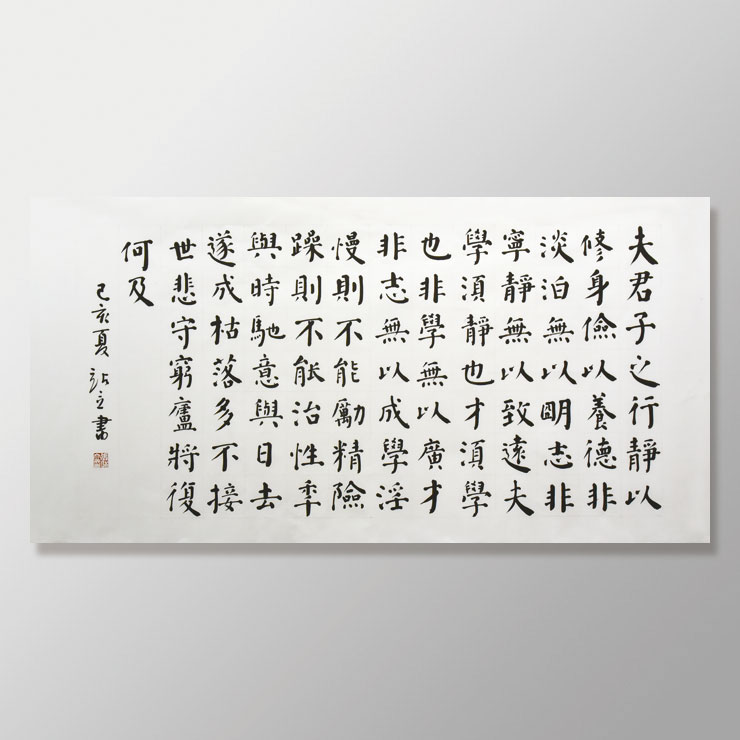 夫君子之行靜以
修身儉以養德非
淡泊無以明志非
寧靜無以致遠夫
學須靜也才須學
也非學無以廣才
非志無以成學淫
慢則不能勵精險
躁則不能治性年
與時馳意與日去
遂成枯落多不接
世悲守窮廬將復
何及
己亥夏 立書